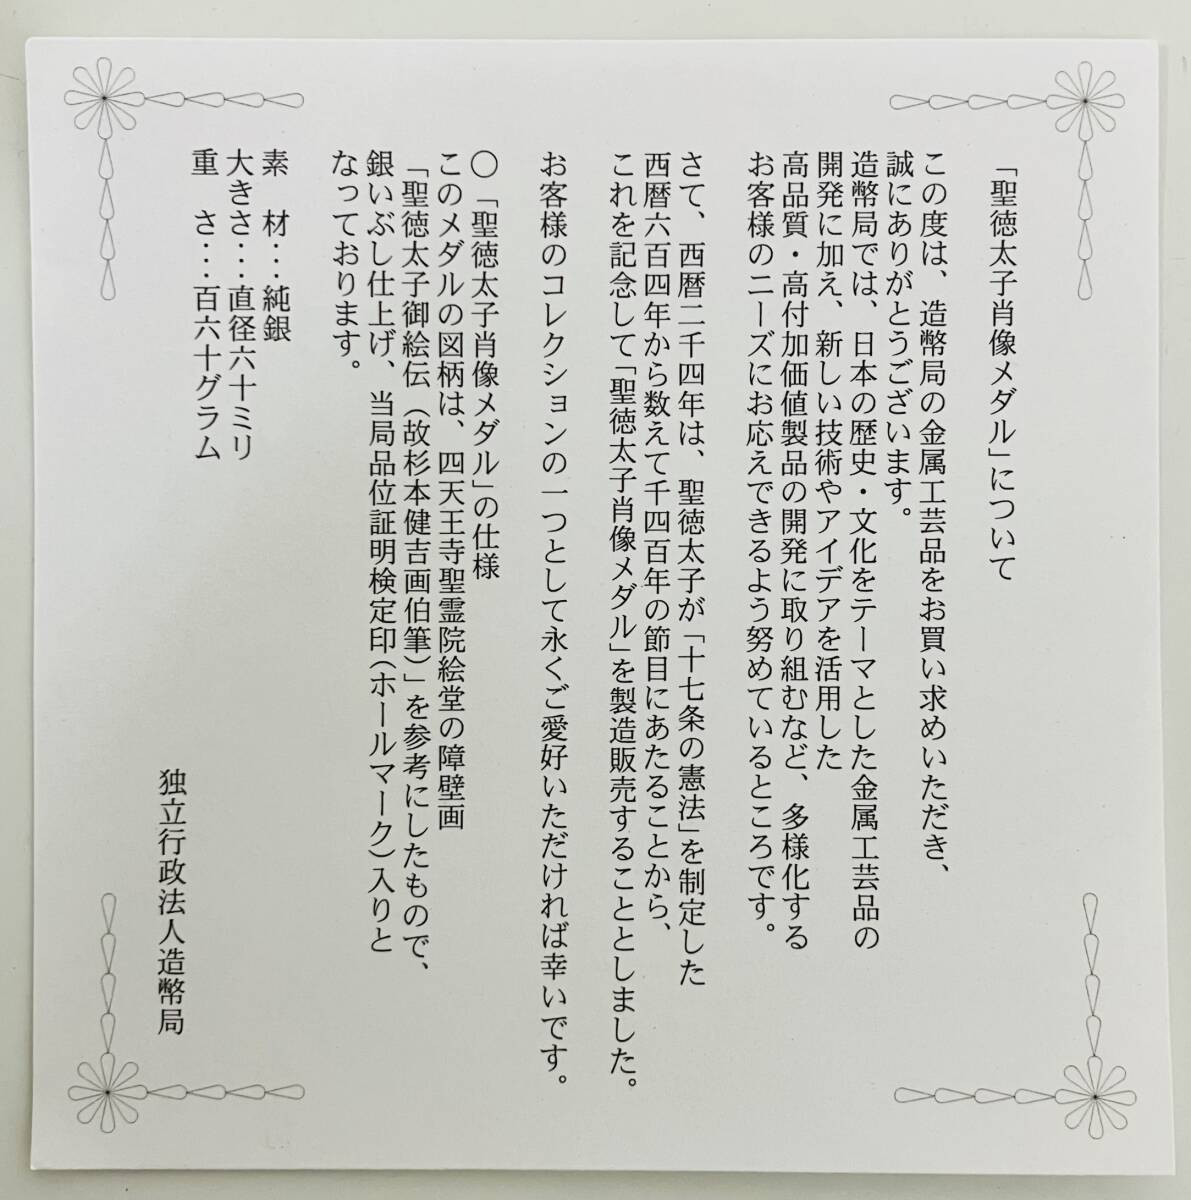 「聖徳太子肖像メダル」について
この度は、造幣局の金属工芸品をお買い求めいただき、
誠にありがとうございます。
造幣局では、日本の歴史・文化をテーマとした金属工芸品の
開発に加え、新しい技術やアイデアを活用した
高品質・高付加価値製品の開発に取り組むなど、多様化する
お客様のニーズにお応えできるよう努めているところです。
さて、西暦二千四年は、聖徳太子が「十七条の憲法」を制定した
西暦六百四年から数えて千四百年の節目にあたることから、
これを記念して「聖徳太子肖像メダル」を製造販売することとしました。
お客様のコレクションの一つとして永くご愛好いただければ幸いです。
〇「聖徳太子肖像メダル」の仕様
このメダルの図柄は、四天王寺聖霊院絵堂の障壁画
「聖徳太子御絵伝（故杉本健吉画伯筆）」を参考にしたもので、
銀いぶし仕上げ、当局品位証明検定印（ホールマーク）入りと
なっております。
素　材・・・純銀
大きさ・・・直径六十ミリ
重　さ・・・百六十グラム
独立行政法人造幣局